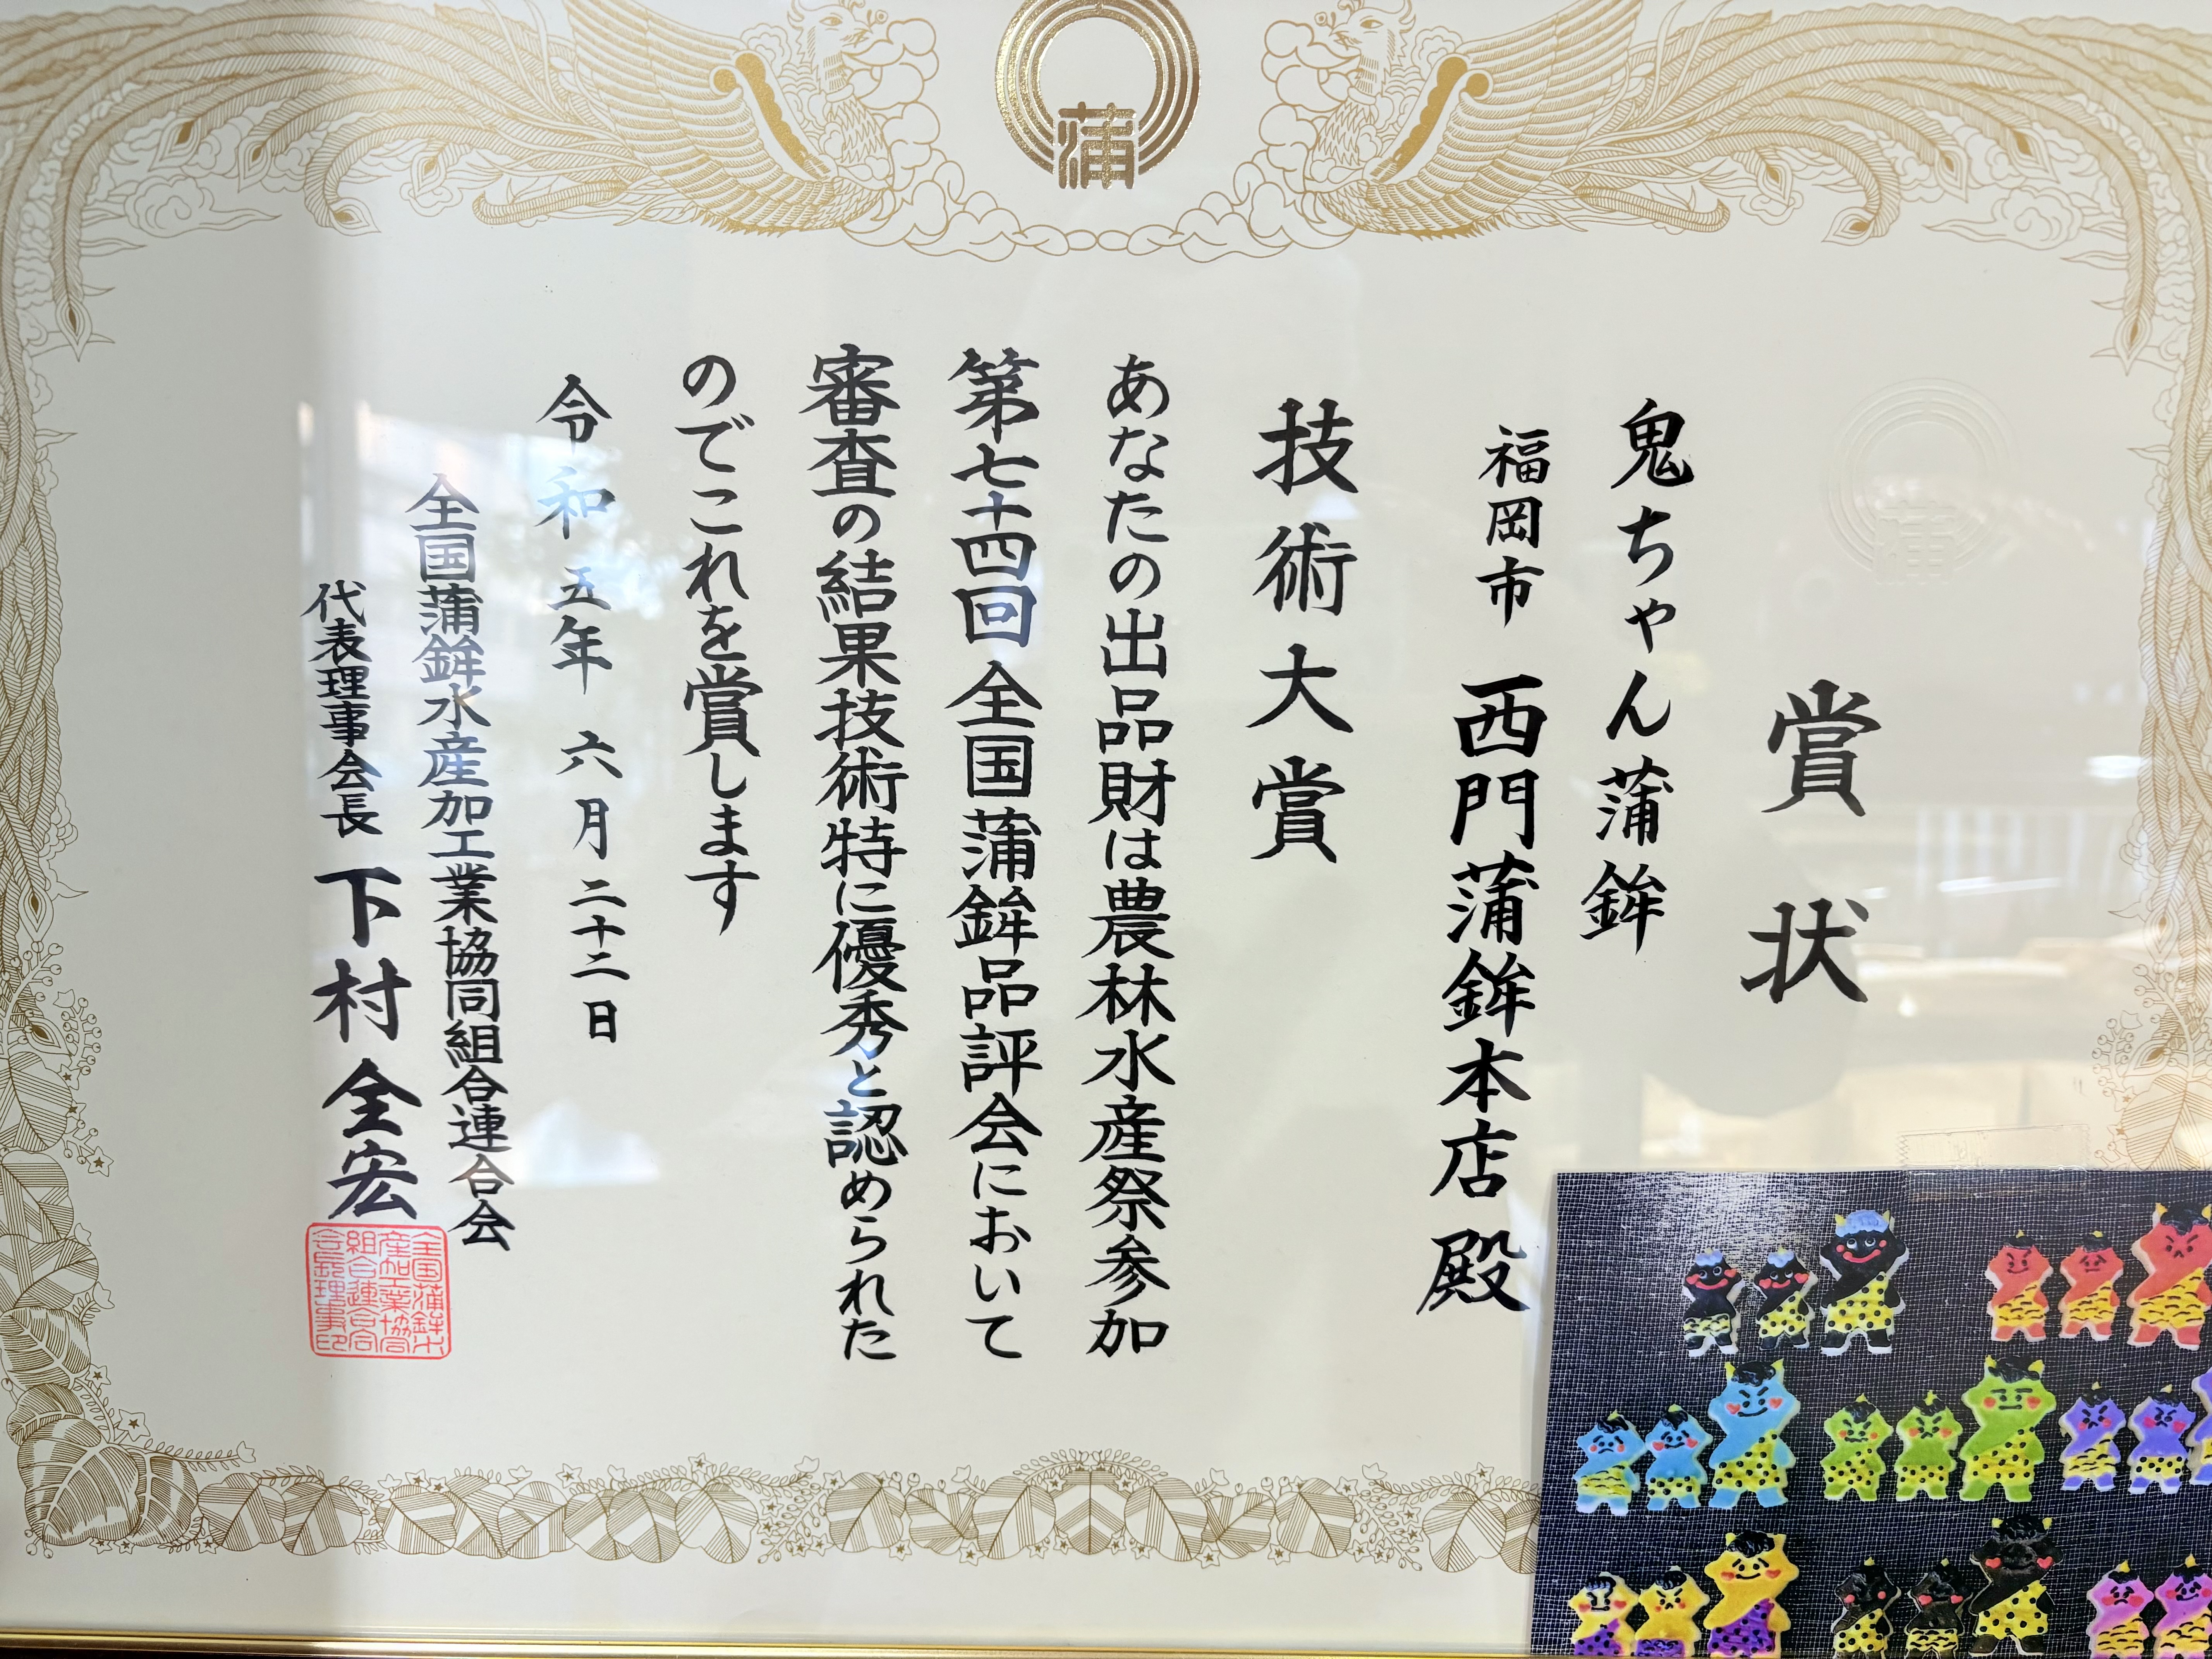 蒲
賞状
鬼ちゃん蒲鉾
福岡市 西門蒲鉾本店 殿
技術大賞
あなたの出品財は農林水産祭参加
第七十四回全国蒲鉾品評会において
審査の結果技術特に優秀と認められた
のでこれを賞します
令和五年六月二十二日
全国蒲鉾水産加工業協同組合連合会
代表理事会長 下村全宏